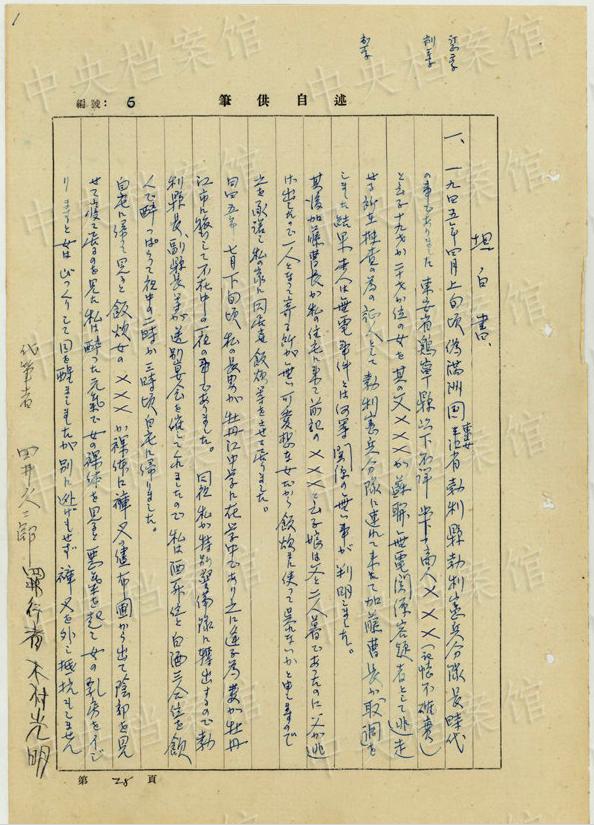 述自供筆
編號：6
坦白書、
一、一九四五年四月上旬頃偽満洲国東安省勃利縣勃利憲兵分隊長時代
の事でありました 東安省鶏寧縣以下不詳 商人×××(記憶不確実)
と云ふ十九才か二十才か位の女を其の父×××が蘇聯無電関係容疑者として逃走
せる為捜査の為の証人として勃利憲兵分隊に連れて来まして加藤曹長が取調を
しました結果 本人は無電事件とは何等関係の無い事が判明しました。
其後加藤曹長が私の住宅に来て前記の×××と云ふ娘は父と二人暮であったのに父が逃
げ出したので一人となって寄る所が無い可哀想な女だから飯炊に使って呉れないかと申しますので
之を承諾して私の家に同居させ飯炊等をさせて居りました。
四五年七月下旬頃 私の長男が牡丹江中学に在学中であり之に
江市に後して不在中の一夜の事でありました。同夜私が特別警備隊に轉出するので勃
利縣長、副縣長等が送別宴会を催してくれましたので私は酒五合位と白酒三合位を飲
んで酔っぱらって夜中の二時か三時頃自宅に帰りました。
自宅に帰って見ると飯炊女の×××が裸体に褌又の儘布團から出て陰部を見
せて寝て居るのを見た私は酔った元気で女の裸体を見ると悪気を起して女の乳房をイジ
りますと女はびっくりして目を醒ましましたが別に逃げもせず褌又を外し抵抗もしません
代筆者 田井久二郎 罪行者 木村光明
第 25 頁